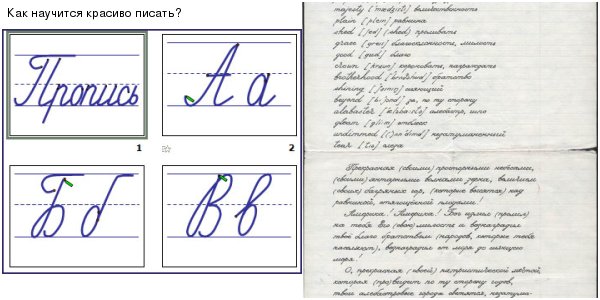 Как научится красиво писать?
Пропись
1
А а
2
Б б
В в
majesty ['mædʒisti] величественность
plain [plein] равнина
shed [ʃed] (shed) проливать
grace [greis] благосклонность, милость
good [gud] благо
crown [kraun] короновать, награждать
brotherhood братство
shining сияющий
beyond за, по ту сторону
alabaster
gleam [gli:m]
undimmed незатуманенный
tear [tiə] слеза
Прекрасная (своими) просторными небесами,
(своими) янтарными волнами зерна, величием
(своих) багряных гор, (которые высятся) над
равниной, отягощённой плодами!
Америка! Америка! Бог излил (пролил)
на тебя Его (свою) милость и вознаградил
твоё благо братством (народов, которые тебя
населяют), вознаградил от моря до сияющего
моря!
О, прекрасная (своей) патриотической мечтой,
которая (про)видит по ту сторону годов,
твои алебастровые города светятся, незатума-